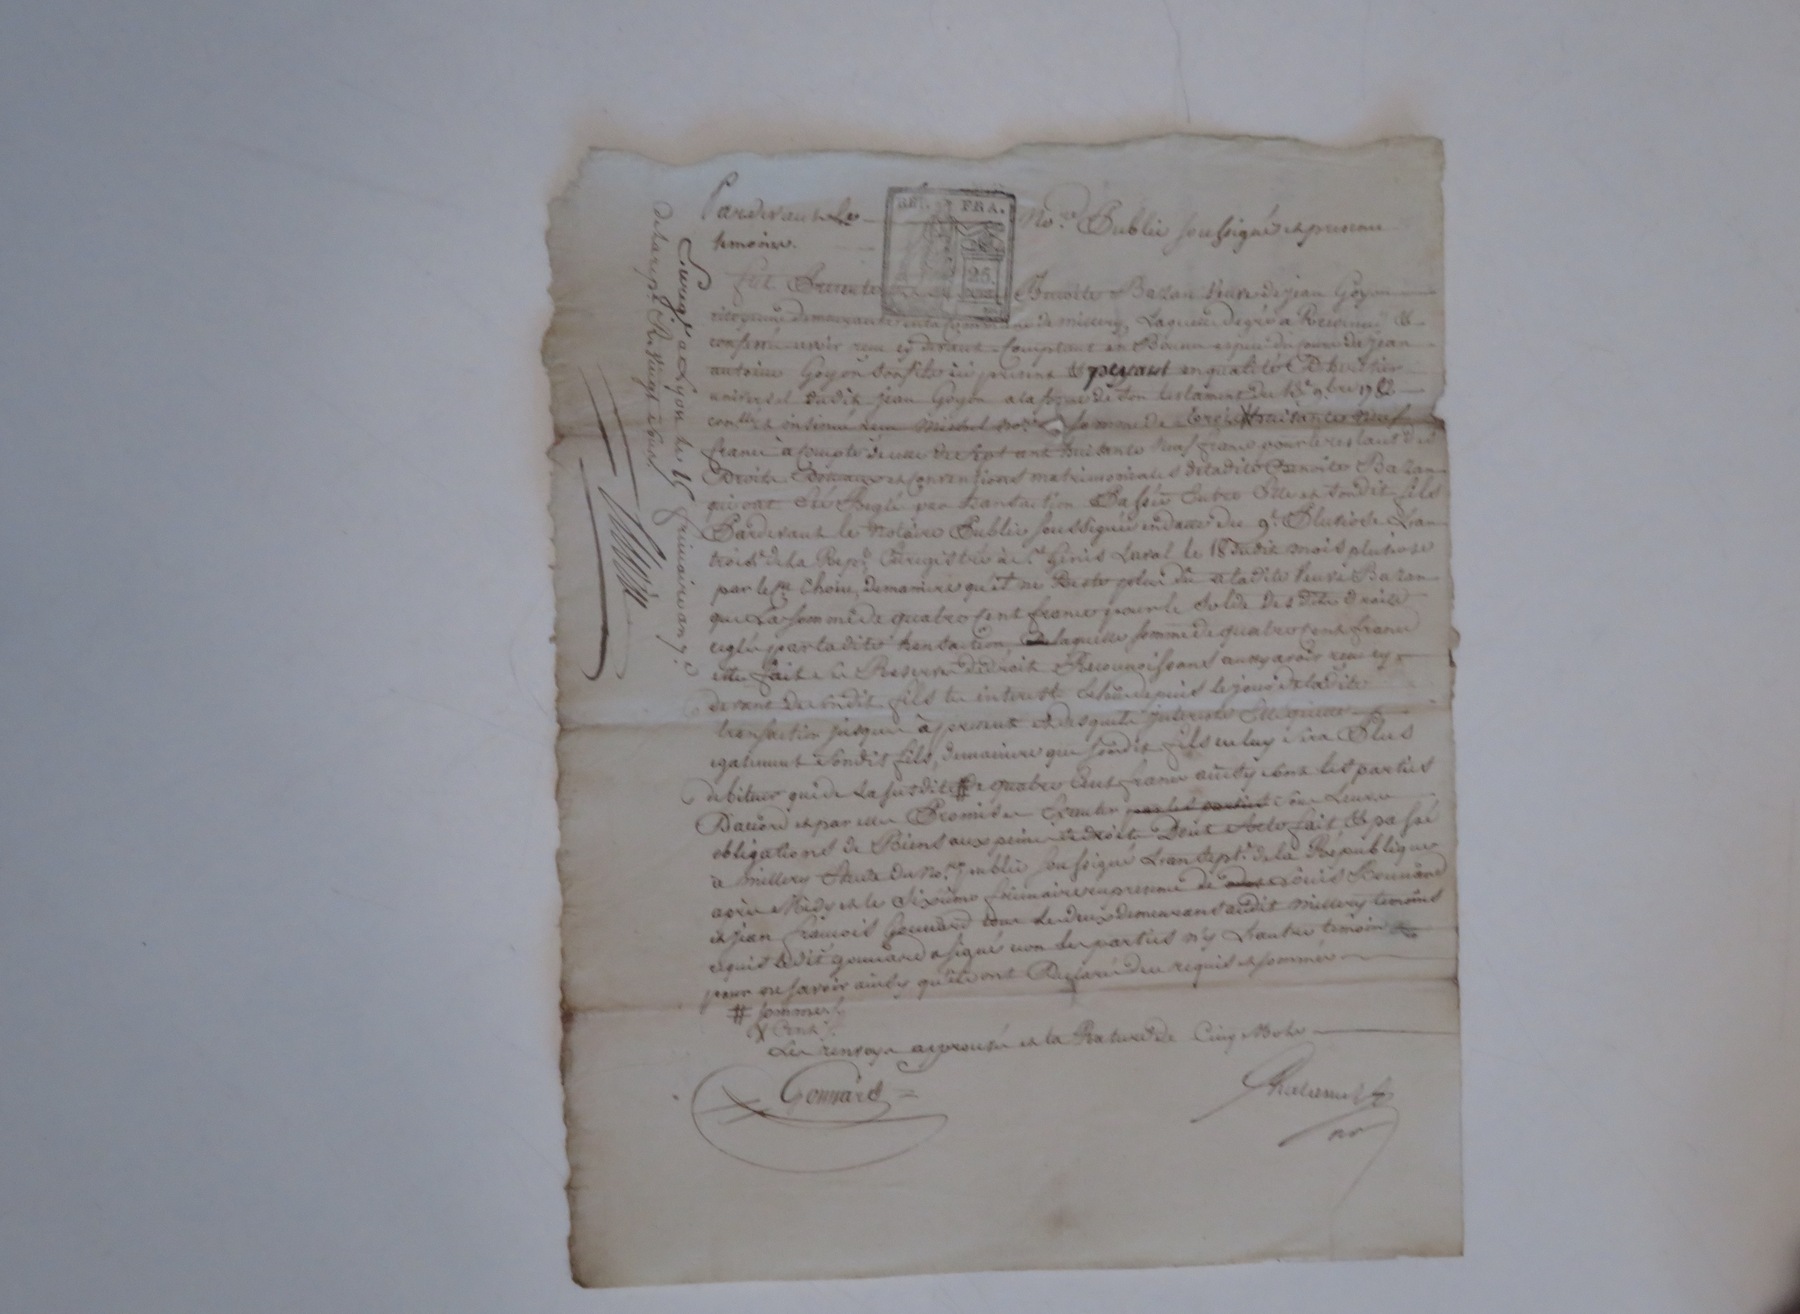 Pardevant Le No.re Public soussigné et presence
temoins.
REP. FRA.
25
fut Presente Benoite Bazan veuve de jean Goyon
citoyenne demeurante en la Commune de millery, Laquelle de gré a Reconnu &
confessé avoir recu cy devant Comptant en Bonnes espece du jour de jean
antoine Goyon son fils ici present & peyant en qualité D'heritier
universel dudit jean Goyon a la forme de son testament du 9.bre 1782
et insinué sommede trois huitante neuf
francs à compte de celle de sept cent huitante neuf francs pour le restant des
Droits Dotteaux et Convensions matrimoniales de ladite Benoite Bazan
qui ont été Reglé par transaction Passée Entre Elle et sondit fils
Pardevant le Notaire Public soussigné en datte du 9.e Pluviose L'an
trois.e de la Rep.e Enregistré à S.t Genis Laval le 18 dudit mois pluviose
par le C.en demaniere qu'il ne Reste plus dû a ladite Veuve Bazan
que La somme de quatre Cent francs pour le Solde des dits droits
reglé par ladite transaction de laquelle somme de quatre Cent francs
elle fait Reserve de droit Reconnoissant aussy avoir recu cy
devant de sondit fils les interest depuis le jour de ladite
transaction jusques à present et desquels interests Elle quitte
egalement sondit fils, demaniere que sondit fils ne luy sera Plus
debiteur que de La susdite # de quatre Cent francs ainsy sont les parties
D'accord et par elles Promis et Executer par les parties sous Leurs
obligations de Biens aux peines de droit Dont Acte fait & passé
a millery Etude du No.re public soussigné L'an sept.e de la Republique
après Midy et le Sixieme frimaire en presence de Louis Bonnard
et jean francois Gonnard tous les deux demeurans audit millery temoins
requis ledit gonnard a signé non les parties n'y L'autre temoin
pour ne savoir ainsy qu'ils ont Declaré de ce requis et sommés
# somme
X Cent
Les renvoys approuvé et la Rature de Cinq Mots
Gonnard
nr
Enreg.é a Lyon le 15 frimaire an 7.e
de la rep.e